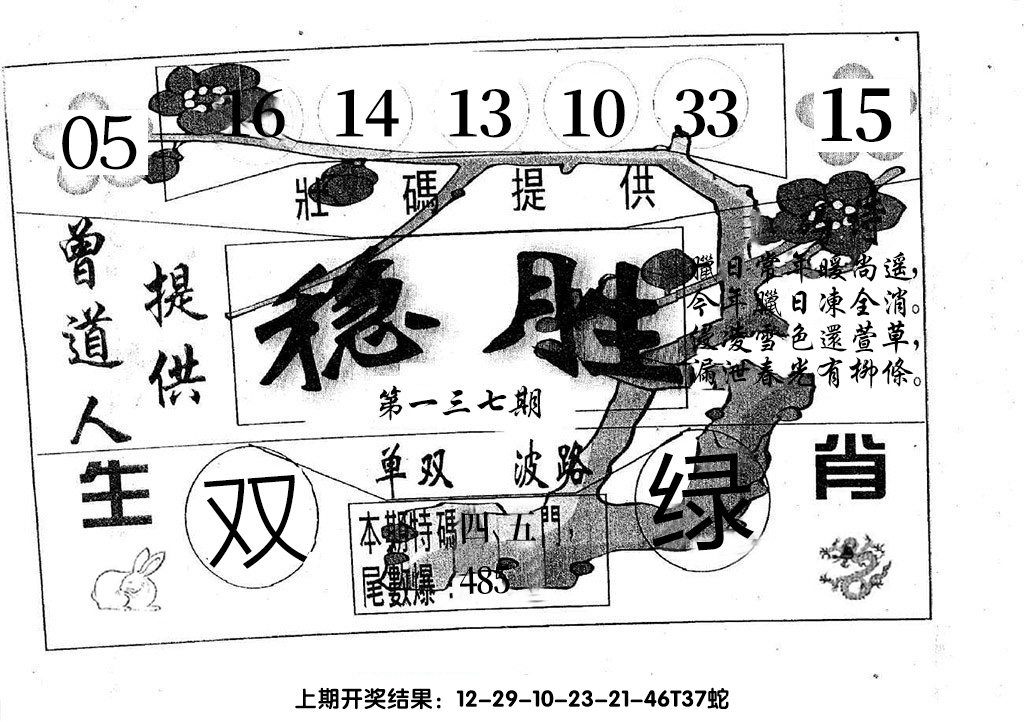 05 16 14 13 10 33 15
壯碼提供
特
曾道人
提供
稳胜
第一三七期
臘日常年暖尚遥，
今年臘日凍全消。
侵凌雪色還萱草，
漏泄春光有柳條。
单双 波路
生
双
绿
肖
本期特碼四、五門，
尾數爆：485
上期开奖结果：12-29-10-23-21-46T37蛇